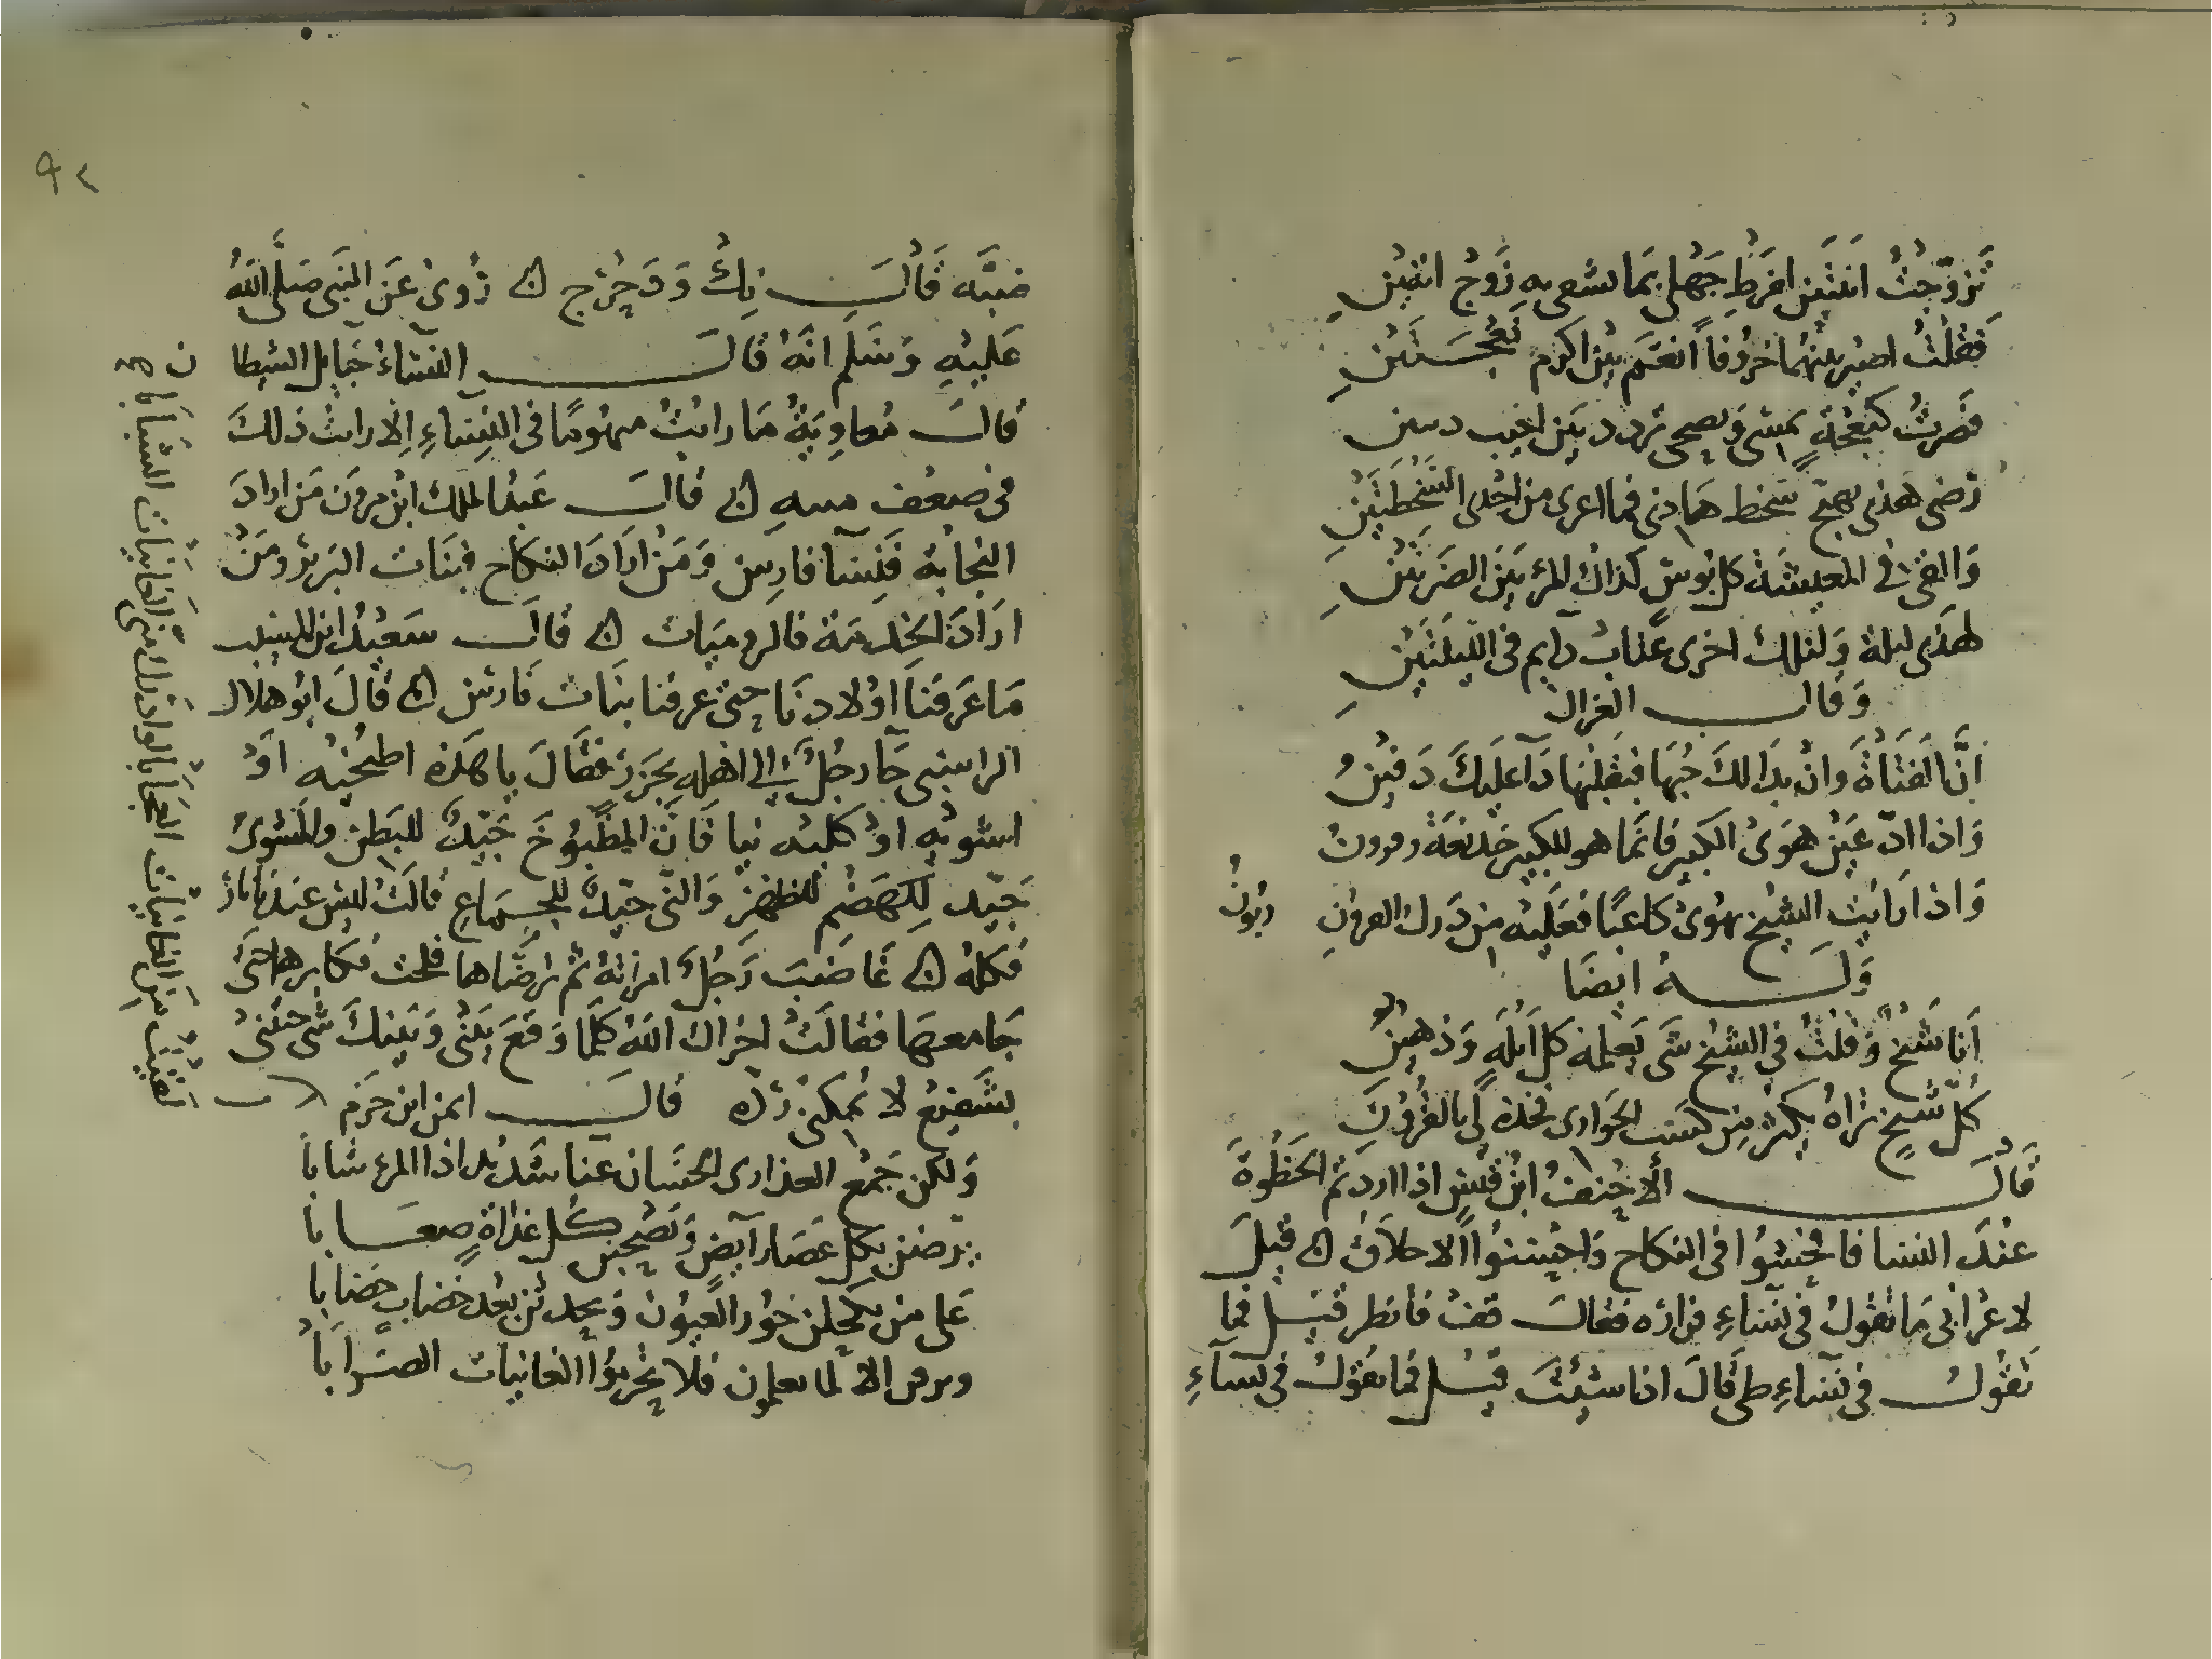 تزوجت اثنتين لفرط جهلي بما يشقى به زوج اثنتين
فقلت اصير بينهما خروفا انعم بين اكرم نعجتين
فصرت كنعجة تمسي وتصحي تردد بين اخبث ديبتين
رضى هذي يهيج سخط هاذي فما اعرى من احدى السخطتين
والقى في المعيشة كل بوس كذاك المرء بين الضرتين
لهذي ليلة ولتلك اخرى عذاب دايم في الليلتين
وقال الغزال
ان الفتاة وان بدا لك حبها فبقلبها داء عليك دفين
واذا ادعين هوى الكبير فانما هو للكبير خديعة وقرون
واذا رايت الشيخ يهوى كاعبا فعليه من درك القرون ديون
وله ايضا
انا شيخ وقلت في الشيخ شي يعلمه كل ابله وذهين
كل شيخ تراه يكثر من كسب الجواري فخذه لي بالقرون
قال الاحنف ابن قيس اذا اردتم الحظوة
عند النسا فافحشوا في النكاح واحسنوا الاخلاق ۞ قيل
لاعرابي ما تقول في نساء فزاره فقال قف فانظر قيل فما
تقول في نساء طي قال اذا شئت قيل فما تقول في نساء
ضبه قال نك ودحرج ۞ روى عن النبي صلى الله
عليه وسلم انه قال النساء حبايل الشيطان
قال معاوية ما رايت منهوما في النساء الا رايت ذلك
في ضعف منته ۞ قال عبد الملك ابن مرون من اراد
النجابة فنسا فارس ومن اراد النكاح فبنات البربر ومن
اراد الخدمة فالروميات ۞ قال سعيد ابن المسيب
ما عرفنا اولادنا حتى عرفنا بنات فارس ۞ قال ابو هلال
الراسبي جا رجل الى اهله بجزر فقال يا هذه اطبخيه او
اشويه او كليه نيا فان المطبوخ جيد للبطن والمشوى
جيد للهضم للظهر والني جيد للجماع قالت ليس عندنا نار
فكله ۞ غاضب رجل امراته ثم ترضاها فلحت فكابرها حتى
جامعها فقالت اخزاك الله كلما وقع بيني وبينك شي جئتني
بشفيع لا يمكنني رده قال ايمن ابن خزم
ولكن جمع العذارى الحسان عنا شديد اذا المرء شابا
يرضن بكل عصا رايض ويصبحن كل غداة صعابا
على من يكحلن حور العيون ويحدثن بعد خضاب خضابا
ويبرقن الا لما يعلمون فلا تحرموا الغانيات الضرابا
لقيت من الغانيات العجابا لو ادرك مني الغانيات الشبابا